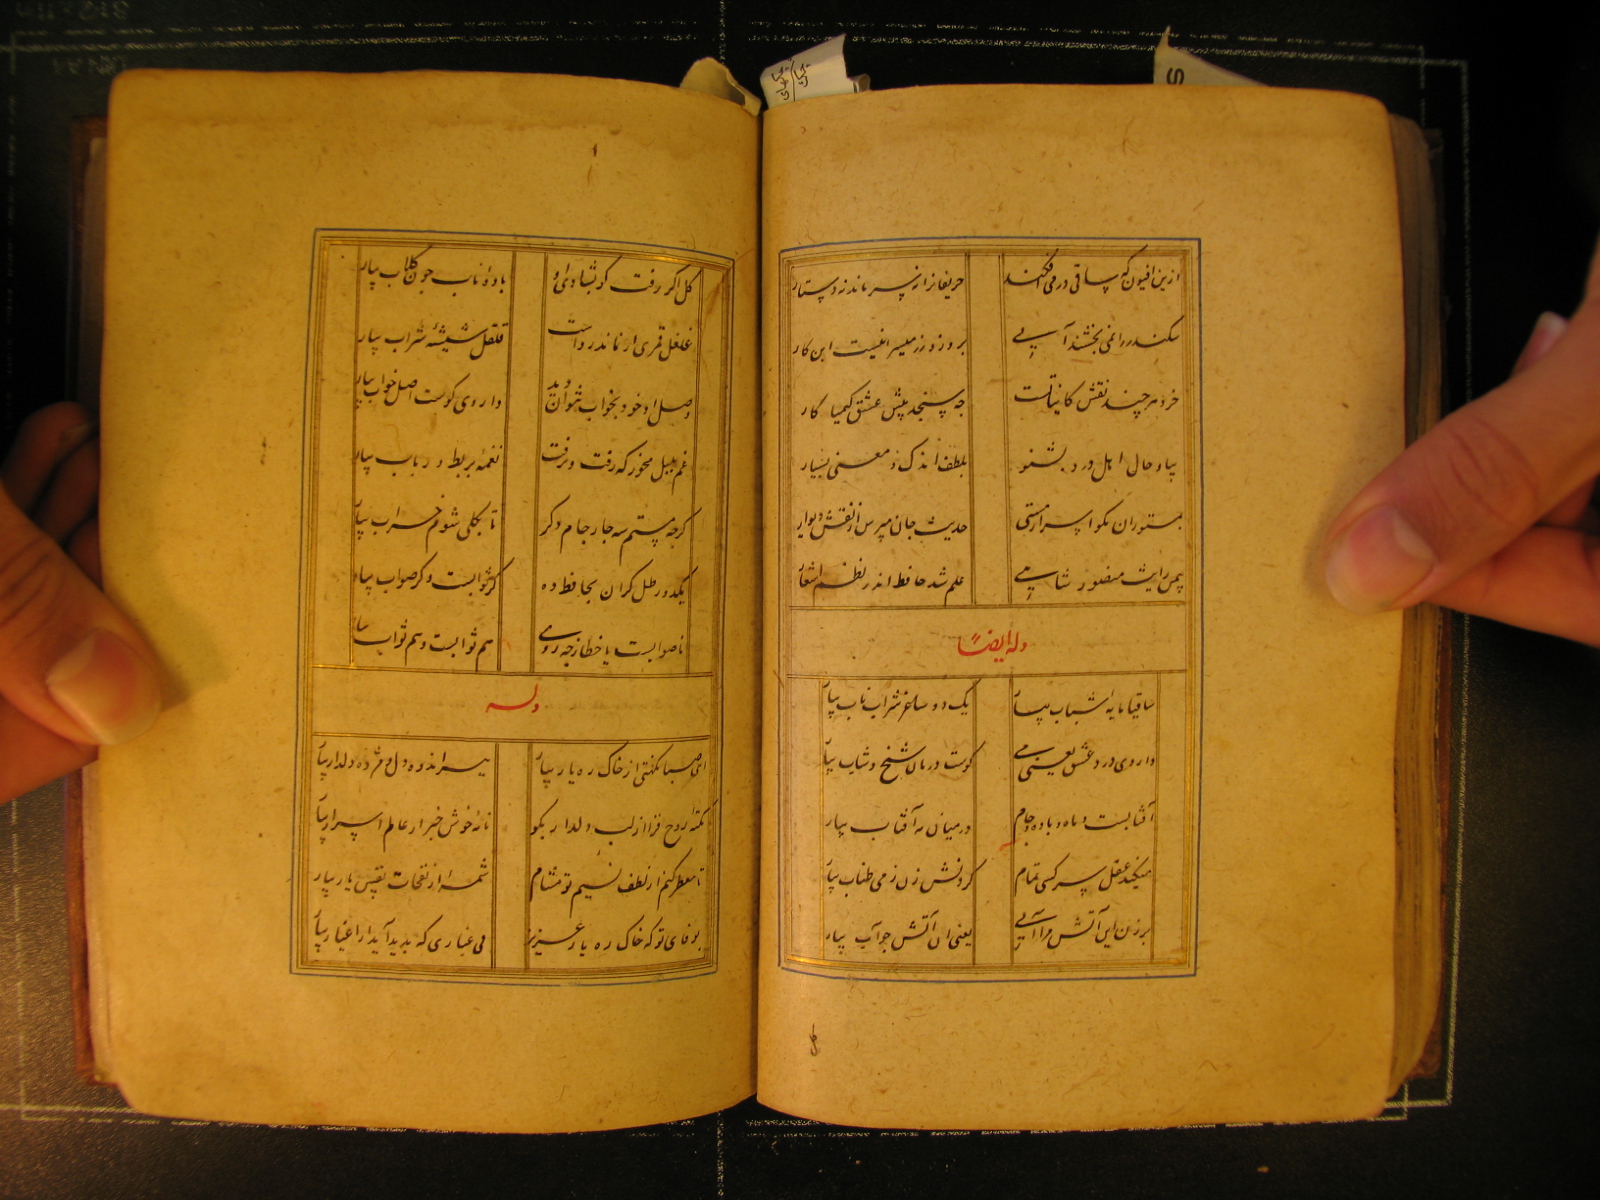 ازین افیون که ساقی در می افکند حریفانرا نه سر ماند نه دستار
سکندر را نمی بخشند آبی بزور و زر میسر نیست این کار
خرد هر چند نقش کاینات است چه سنجد پیش عشق کیمیا کار
بیا و حال اهل درد بشنو بلفظ اندک و معنی بسیار
بمستوران مگو اسرار مستی حدیث جان مپرس از نقش دیوار
بیمن رایت منصور شاهی علم شد حافظ اندر نظم اشعار
وله ایضا
ساقیا مایه شباب بیار یک دو ساغر شراب ناب بیار
داروی درد عشق یعنی می کوست درمان شیخ و شاب بیار
آفتابست و ماه و باده و جام در میان مه آفتاب بیار
میکند عقل سرکشی تمام گردنش زن ز می طناب بیار
بزن این آتش مرا آبی یعنی آن آتش چو آب بیار
گل
گل اگر رفت گو بشادی رو باده ناب چون گلاب بیار
غلغل قمری ار نماند رواست قلقل شیشه شراب بیار
وصل او خود بخواب نتوان دید داروی کوست اصل خواب بیار
غم بلبل مخور که رفت و برفت نغمه بربط و رباب بیار
گرچه مستم سه چار جام دگر تا بکلی شوم خراب بیار
یکدو رطل گران بحافظ ده گر ثوابست و گر صواب بیار
ناصوابست یا خطا زچه روی هم ثوابست و هم ثواب بیار
وله
ای صبا نکهتی از خاک ره یار بیار ببر اندوه دل و مژده دلدار بیار
نکته روح فزا از لب دلدار بگو نامه خوش خبر از عالم اسرار بیار
تا معطر کنم از لطف نسیم تو مشام شمه از نفحات نفس یار بیار
بوفای تو که خاک ره یار عزیز بی غباری که پدید آید از اغیار بیار